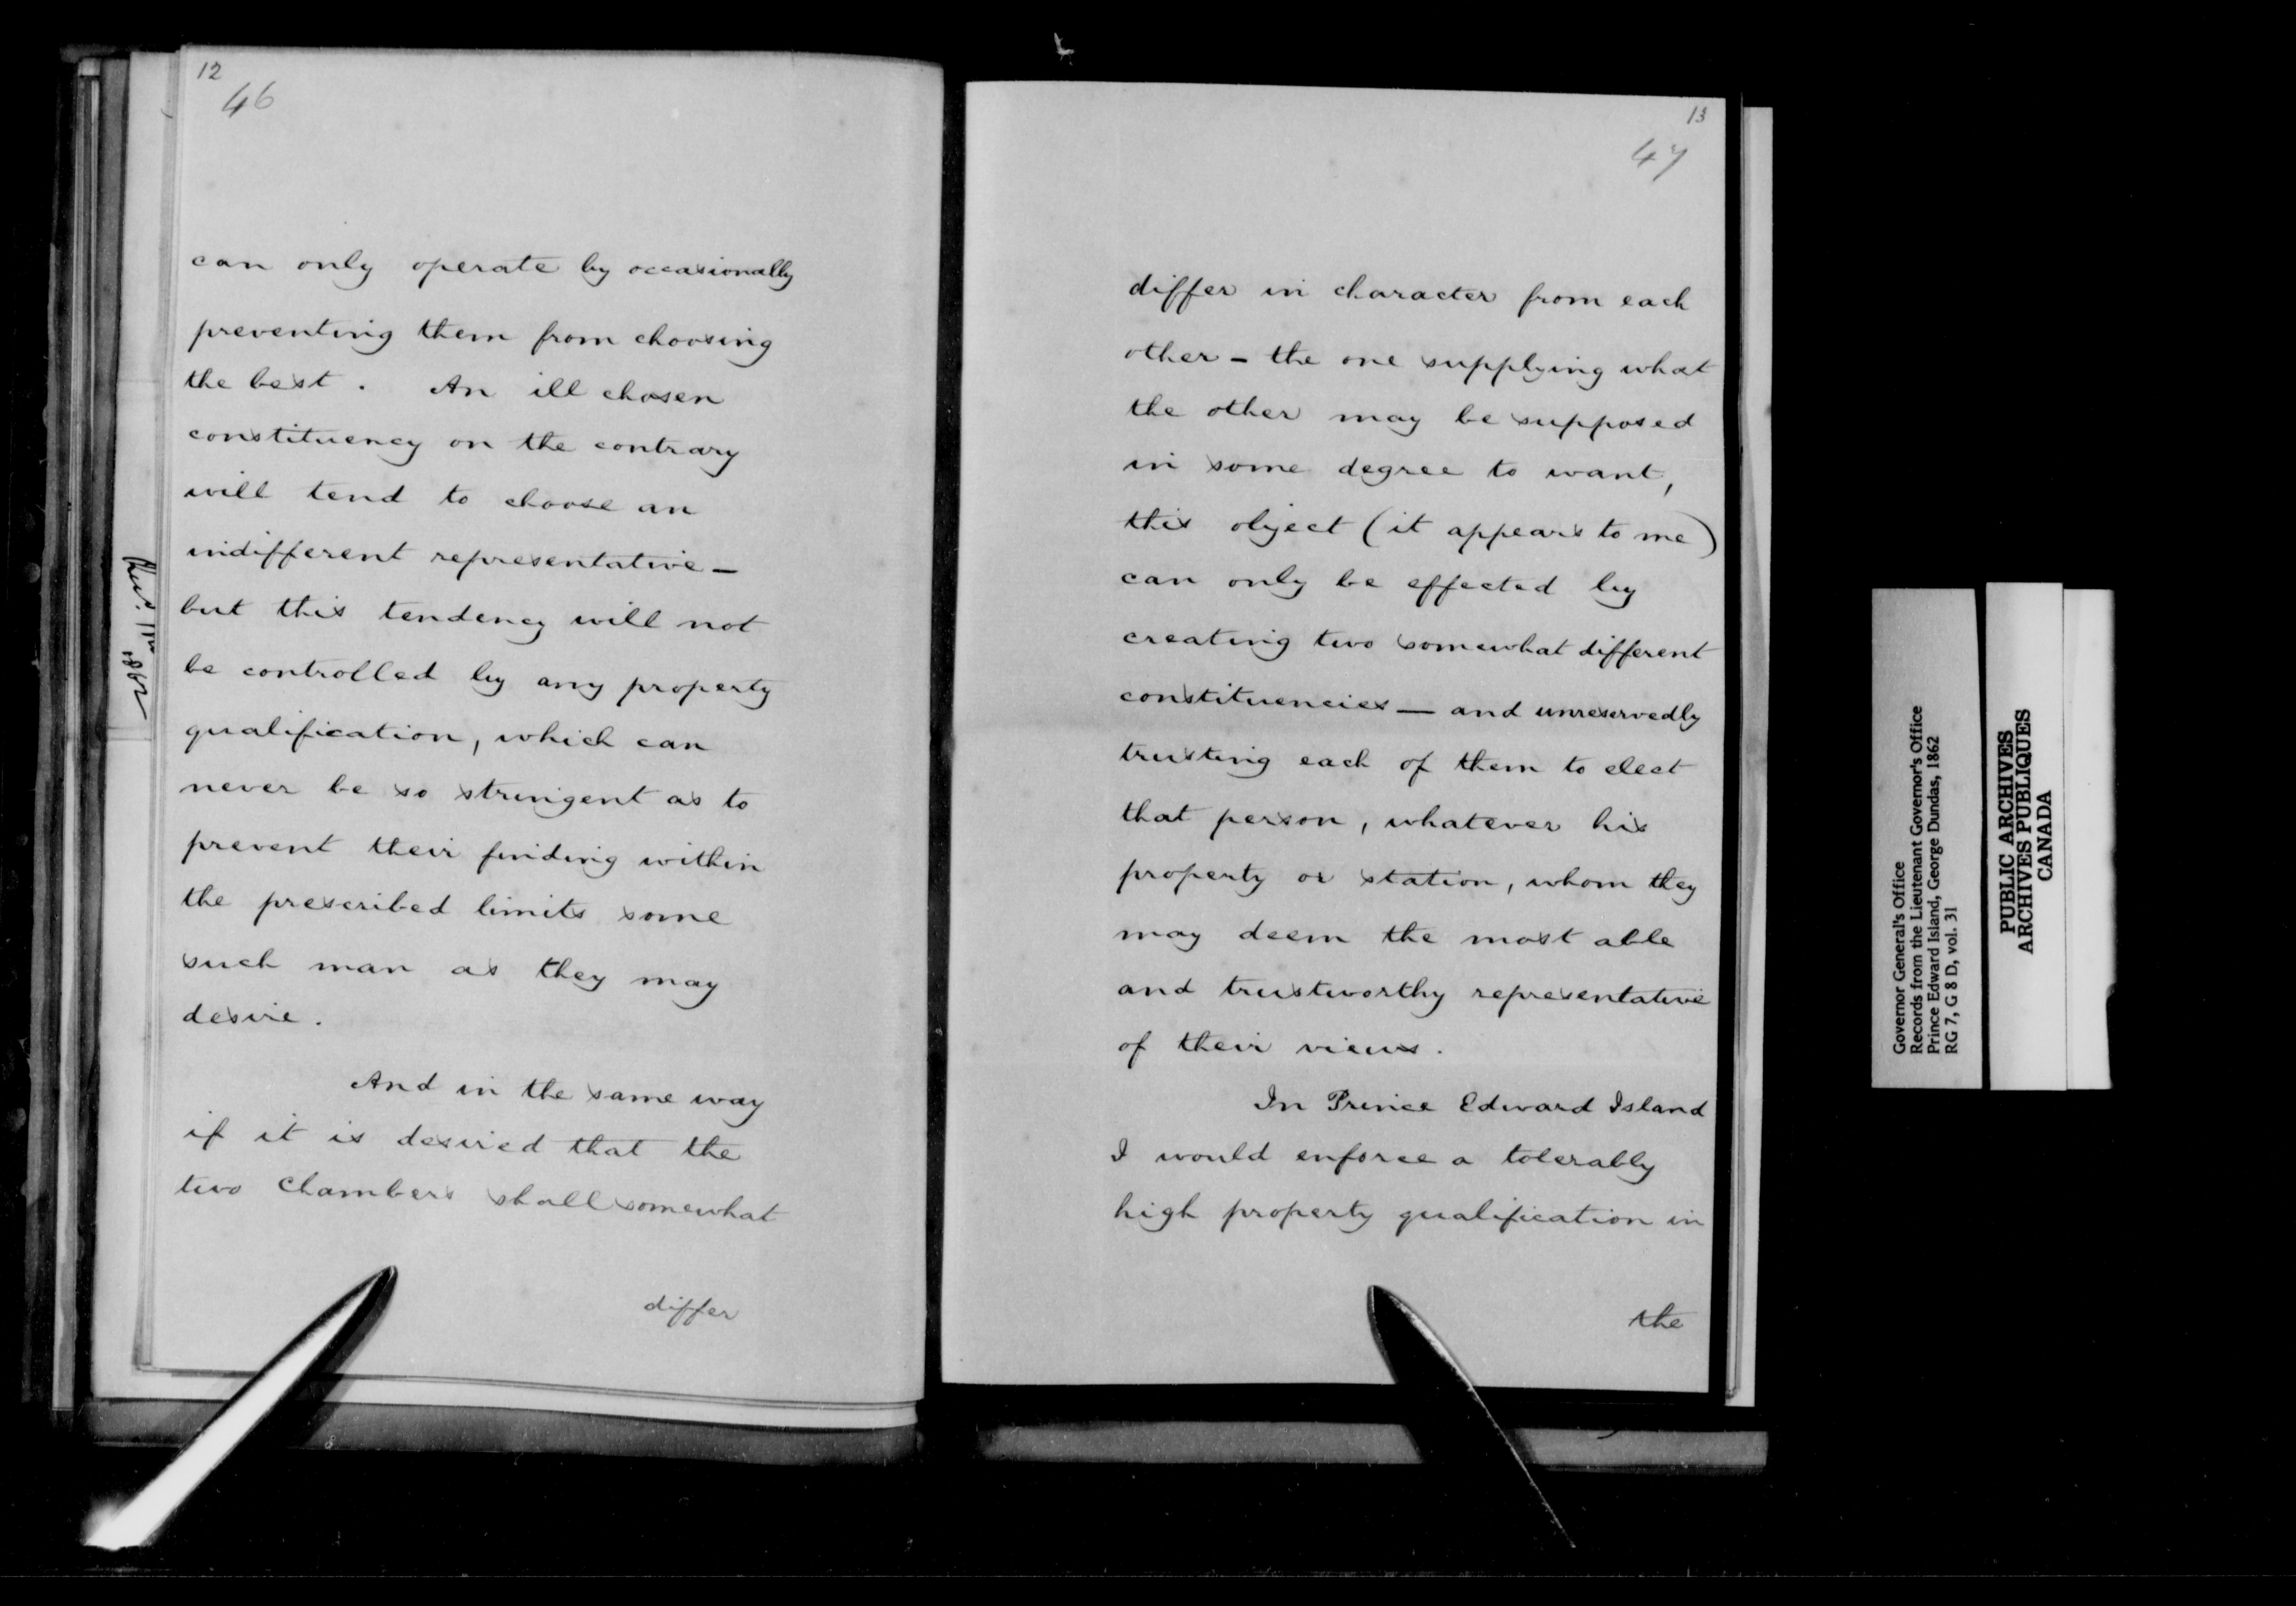 12
46
can only operate by occasionally
preventing them from choosing
the best. An ill chosen
constituency on the contrary
will tend to choose an
indifferent representative —
but this tendency will not
be controlled by any property
qualification, which can
never be so stringent as to
prevent their finding within
the prescribed limits some
such man as they may
desire.
And in the same way
if it is desired that the
two Chambers shall somewhat
differ
13
47
differ in character from each
other — the one supplying what
the other may be supposed
in some degree to want,
this object (it appears to me)
can only be effected by
creating two somewhat different
constituencies — and unreservedly
trusting each of them to elect
that person, whatever his
property or station, whom they
may deem the most able
and trustworthy representative
of their views.
In Prince Edward Island
I would enforce a tolerably
high property qualification in
the
Governor General's Office
Records from the Lieutenant Governor's Office
Prince Edward Island, George Dundas, 1862
RG 7, G 8 D, vol. 31
PUBLIC ARCHIVES
ARCHIVES PUBLIQUES
CANADA